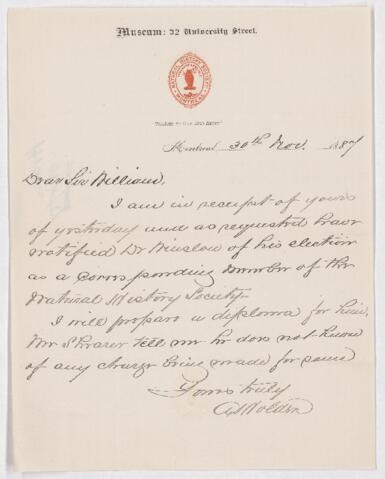 Museum: 32 University Street.
NATURAL HISTORY SOCIETY
MONTREAL
Montreal, 30th Nov. 1887
Dear Sir William,
I am in receipt of yours
of yesterday and as requested have
notified Dr Winslow of his election
as a corresponding member of the
Natural History Society-
I will prepare a diploma for him.
Mr Shearer tell me he does not know
of any charge being made for same
Yours truly
A Holden